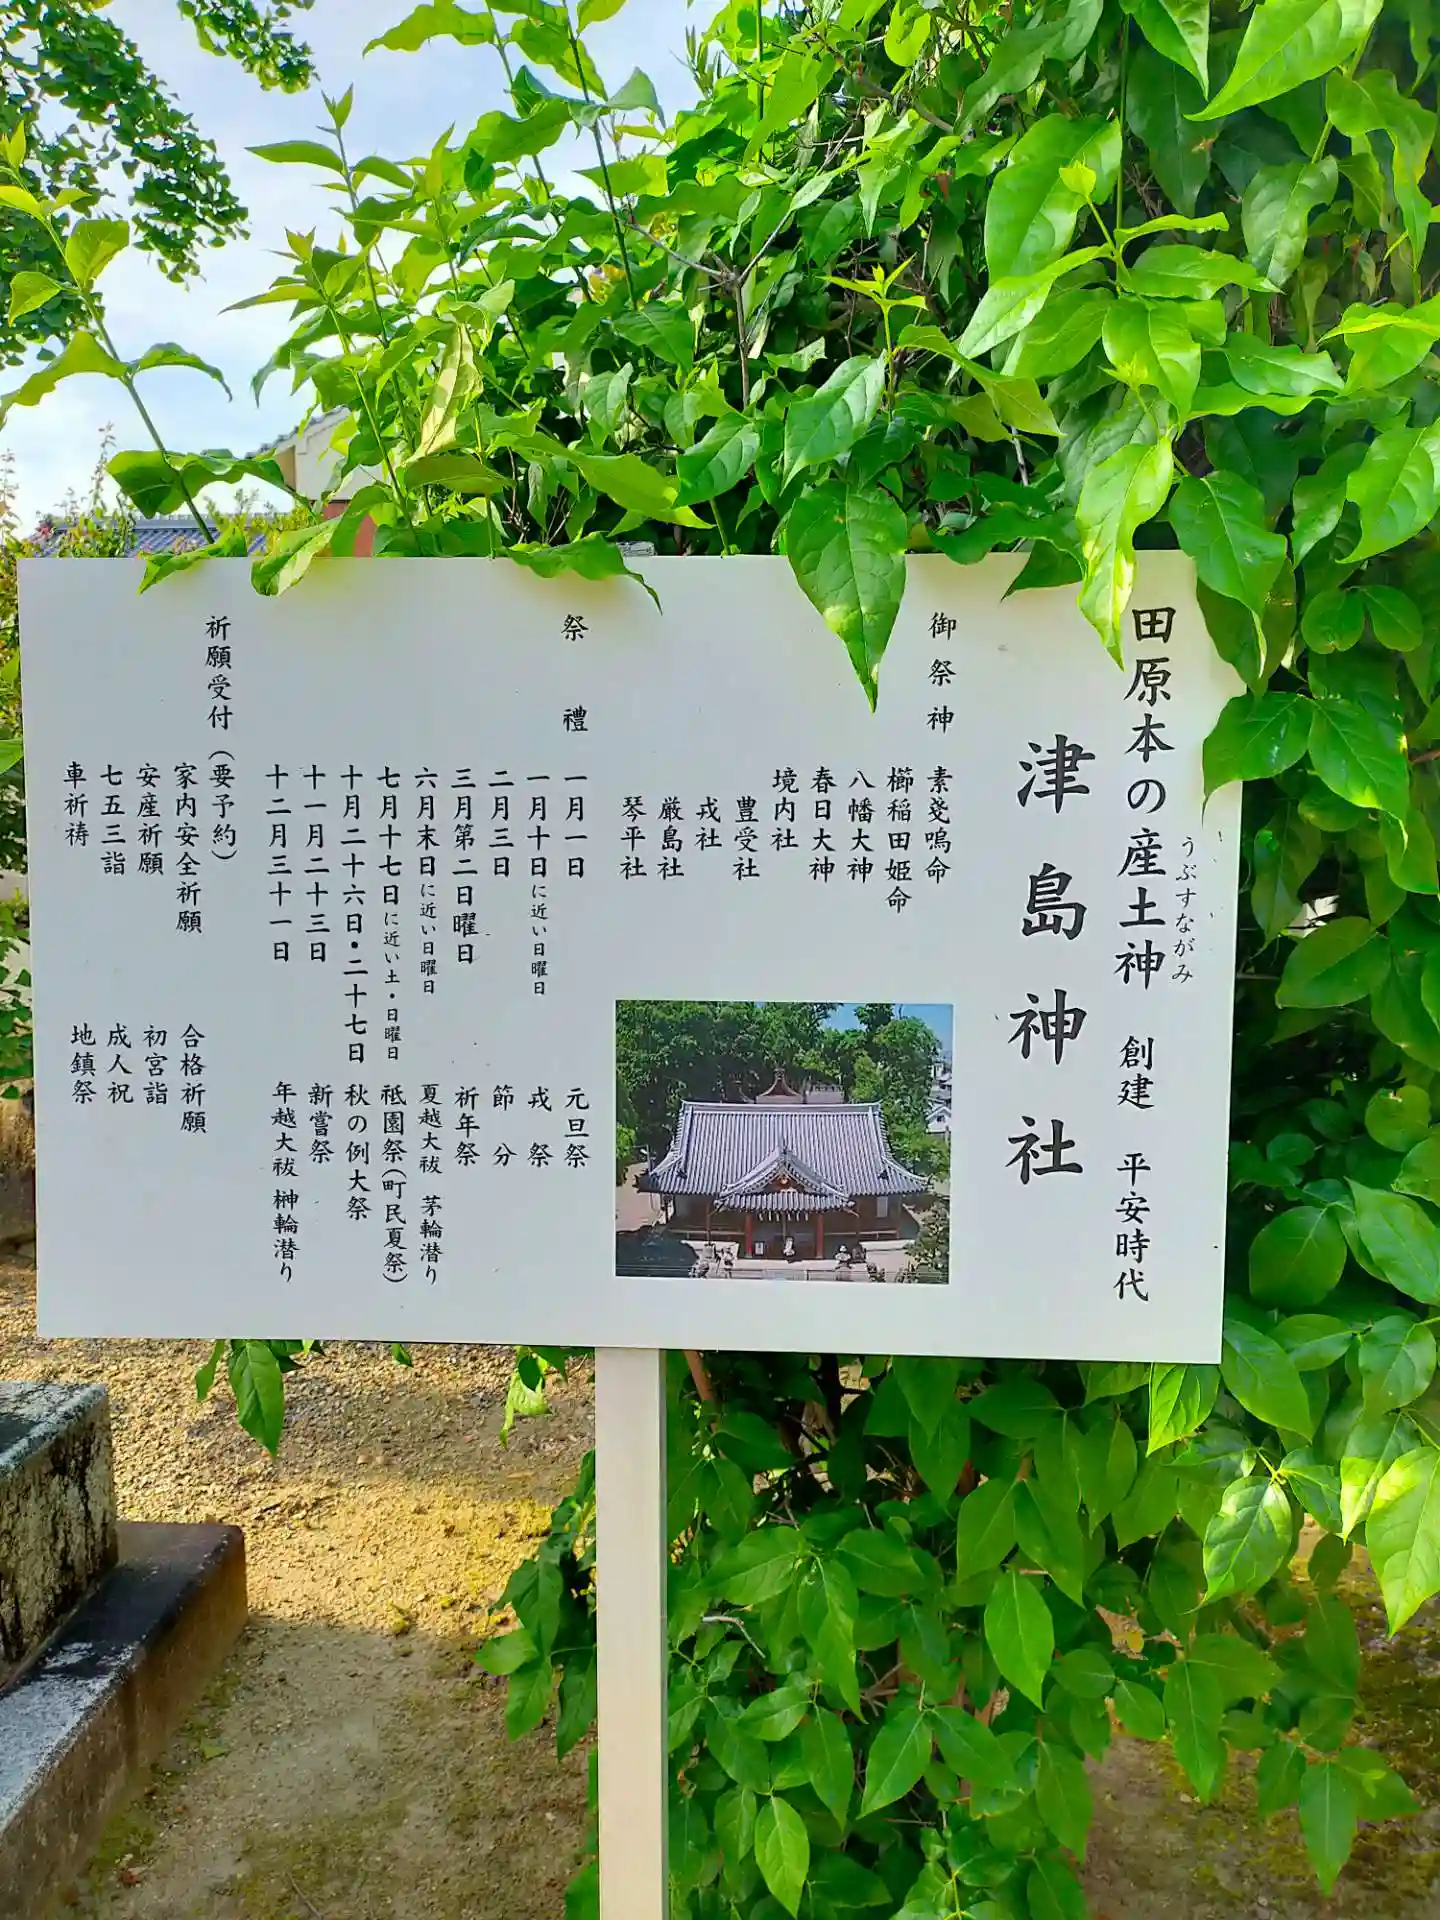 田原本の産土神 創建 平安時代
うぶすながみ
津島神社
御祭神
素戔嗚命
櫛稲田姫命
八幡大神
春日大神
境内社
豊受社
戎社
厳島社
琴平社
祭禮
一月一日 元旦祭
一月十日に近い日曜日 戎祭
二月三日 節分
三月第二日曜日 祈年祭
六月末日に近い日曜日 夏越大祓 茅輪潜り
七月十七日に近い土・日曜日 祗園祭(町民夏祭)
十月二十六日・二十七日 秋の例大祭
十一月二十三日 新嘗祭
十二月三十一日 年越大祓 榊輪潜り
祈願受付(要予約)
家内安全祈願 合格祈願
安産祈願 初宮詣
七五三詣 成人祝
車祈祷 地鎮祭